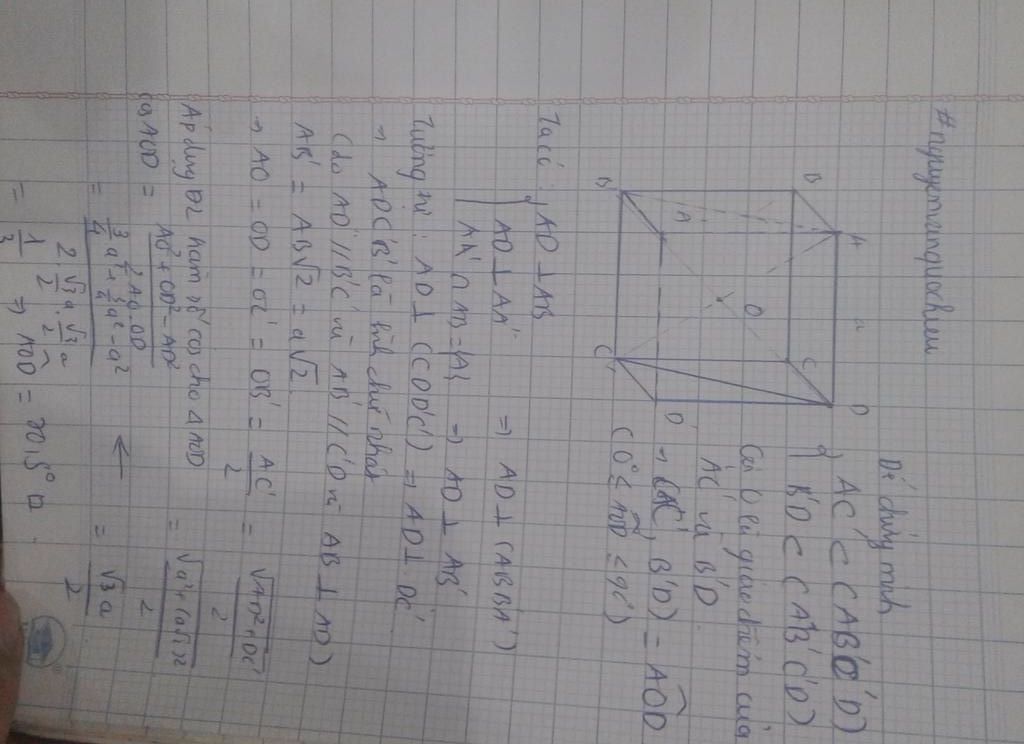 #nguyetanquoclieu
Dễ chứng minh
a) AC' ⊂ (AB'C'D)
B'D ⊂ (AB'C'D)
Gọi O là giao điểm của
AC' và B'D
→ (AC', B'D) = AOD
(0° ≤ AOD ≤ 90°)
B
A
a
D
C
O
B'
A'
C'
D'
Ta có: AD ⊥ AB
AD ⊥ AA'
AA' ∩ AB = {A}
⇒ AD ⊥ (ABB'A')
⇒ AD ⊥ AB'
Tương tự: AD ⊥ (CDD'C') ⇒ AD ⊥ DC'
→ ADC'B' là hình chữ nhật
(do AD // B'C' và AB' // C'D và AB' ⊥ AD)
AB' = AB√2 = a√2
→ AO = OD = OC' = OB' = AC'/2 = √(AD²+DC'²)/2
= √(a²+(a√2)²)/2
= √3a/2
Áp dụng ĐL hàm số cos cho ΔAOD
cos AOD = (AO² + OD² - AD²)/(2.AO.OD)
= (3/4 a² + 3/4 a² - a²)/(2.√3/2 a.√3/2 a) ←
= 1/3 ⇒ AOD = 70,5°